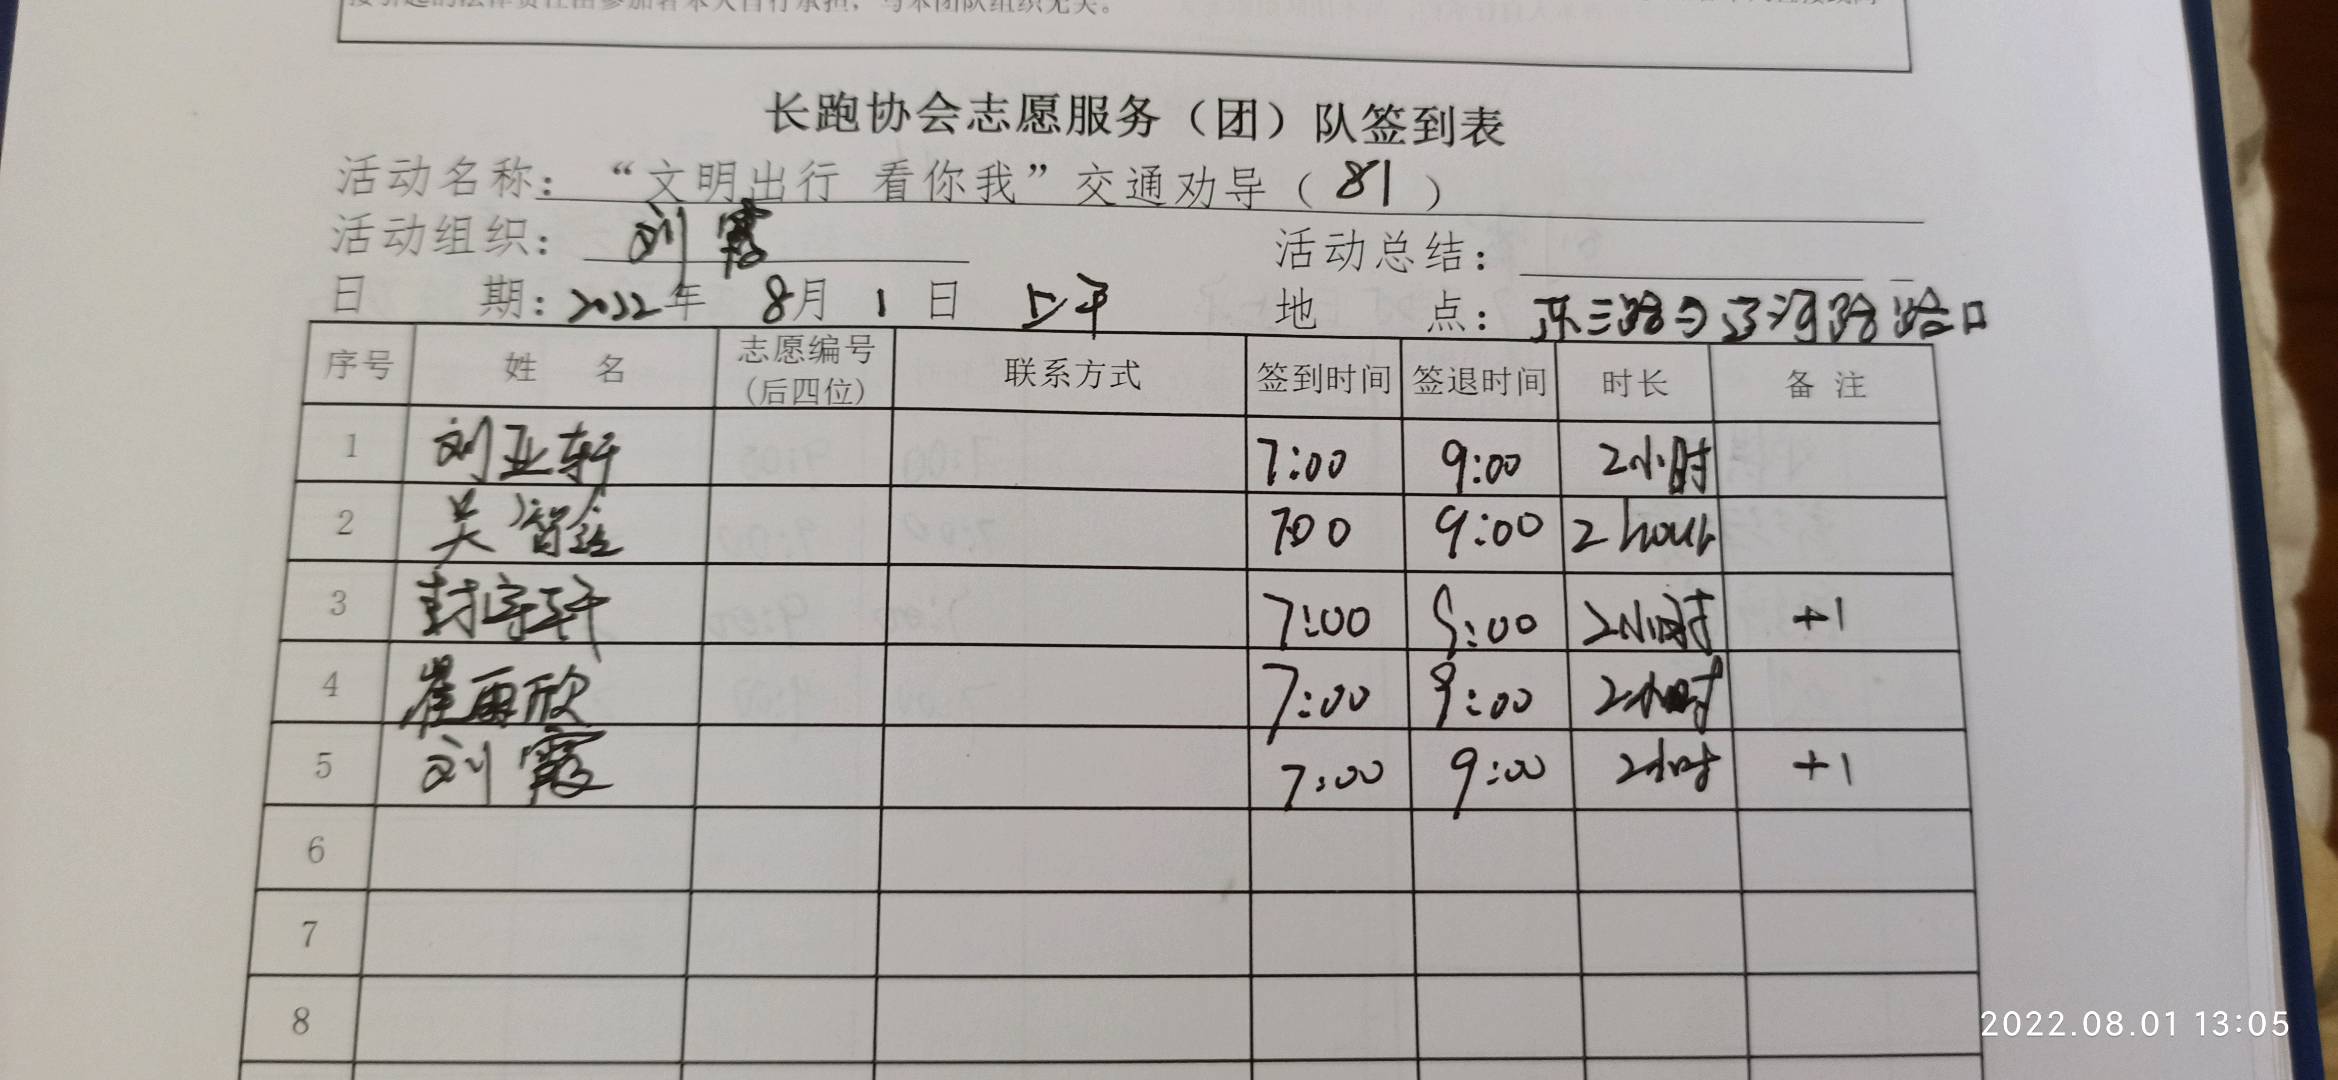 长跑协会志愿服务（团）队签到表
活动名称：“文明出行 看你我”交通劝导（81）
活动组织：刘霞 活动总结：
日 期：2022年 8月 1 日 上午 地 点：东三路与辽河路路口
序号 姓 名 志愿编号（后四位） 联系方式 签到时间 签退时间 时长 备 注
1 刘亚轩 7:00 9:00 2小时
2 吴 7:00 9:00 2 hour
3 封宇轩 7:00 9:00 2小时 +1
4 崔雨欣 7:00 9:00 2小时
5 刘霞 7:00 9:00 2小时 +1
6
7
8
2022.08.01 13:05